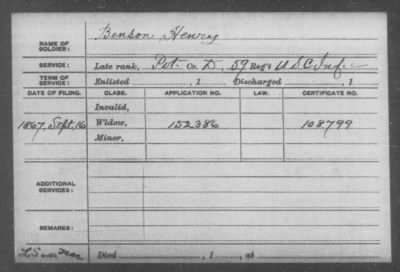 NAME OF SOLDIER: Benson Henry
SERVICE: Late rank, Pvt. Co. D, 59 Reg't U S C Inf.
TERM OF SERVICE: Enlisted , 1 Discharged , 1
DATE OF FILING. CLASS. APPLICATION NO. LAW. CERTIFICATE NO.
Invalid,
1867, Sept. 16 Widow, 152386 108799
Minor,
ADDITIONAL SERVICES:
REMARKS:
Died , 1 , at